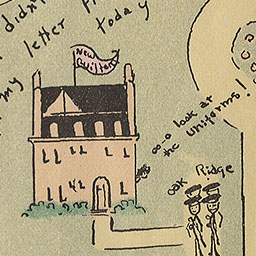 didn't
my letter
today
New
Wilton
oo-o look at
the uniforms!
Oak Ridge